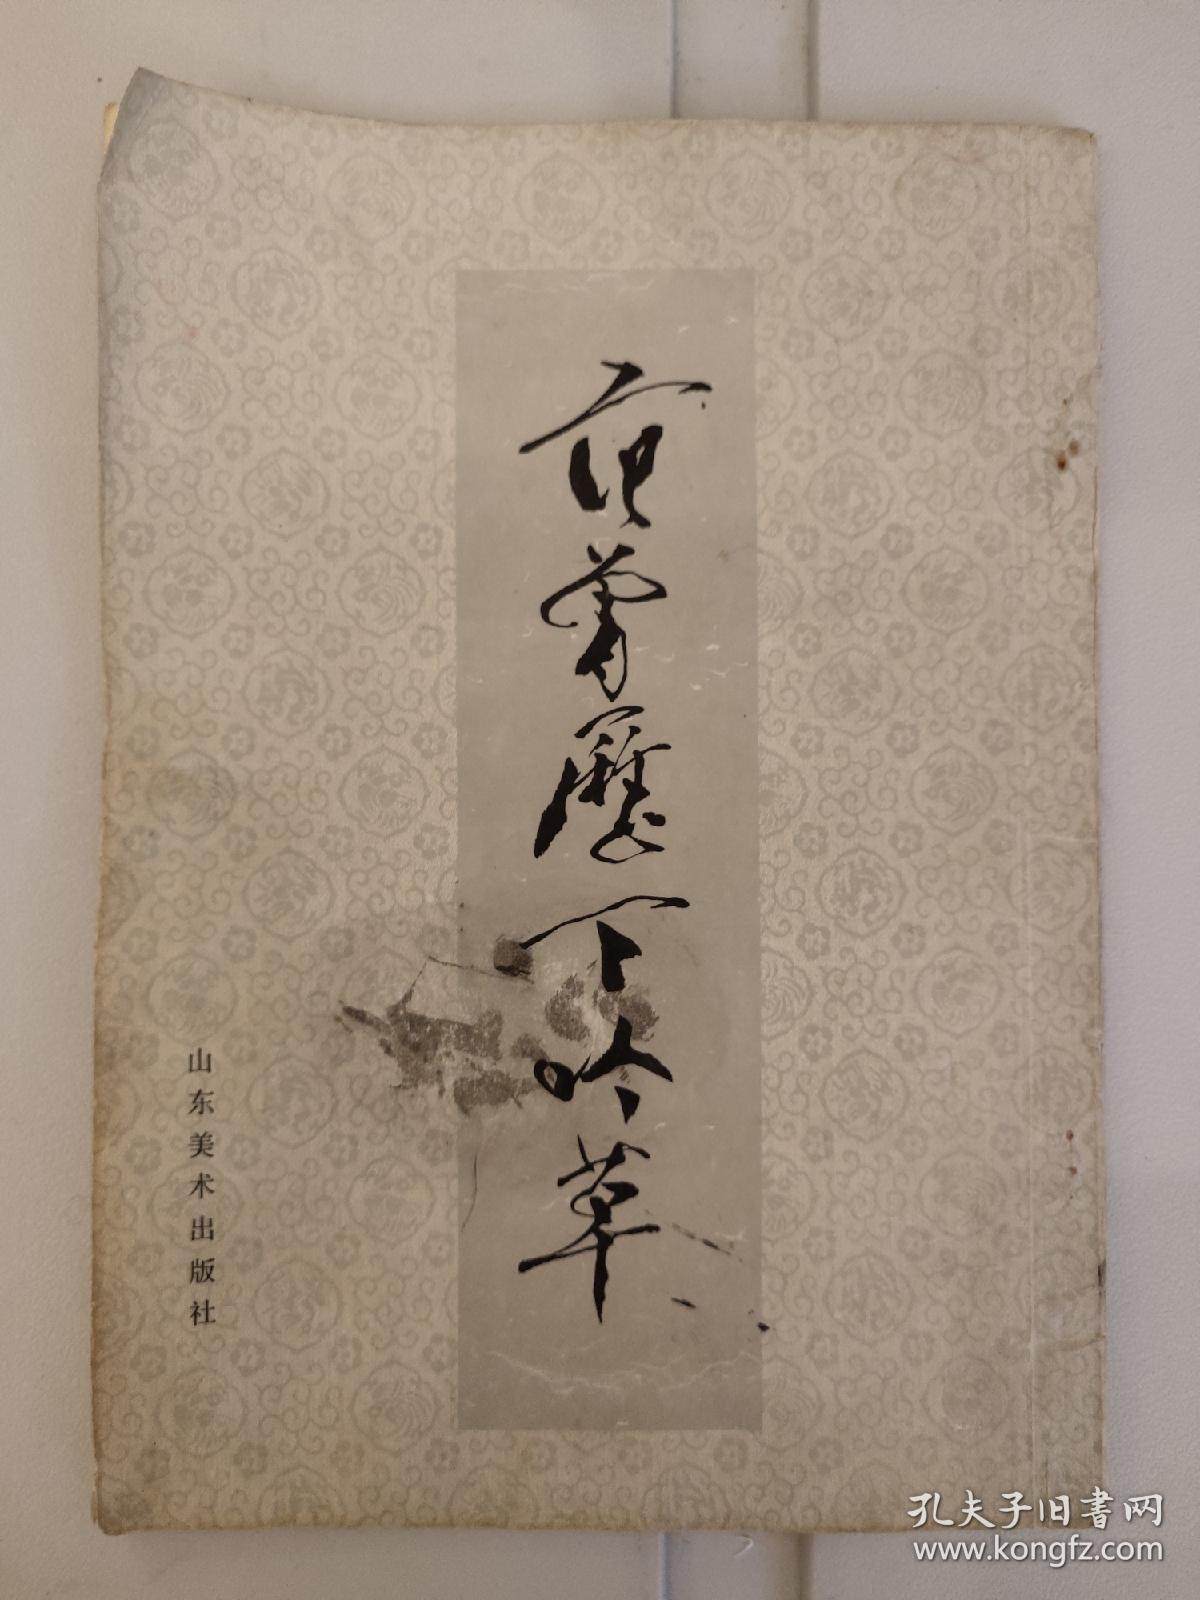 范曾歷下吟草
山东美术出版社
孔夫子旧书网
www.kongfz.com